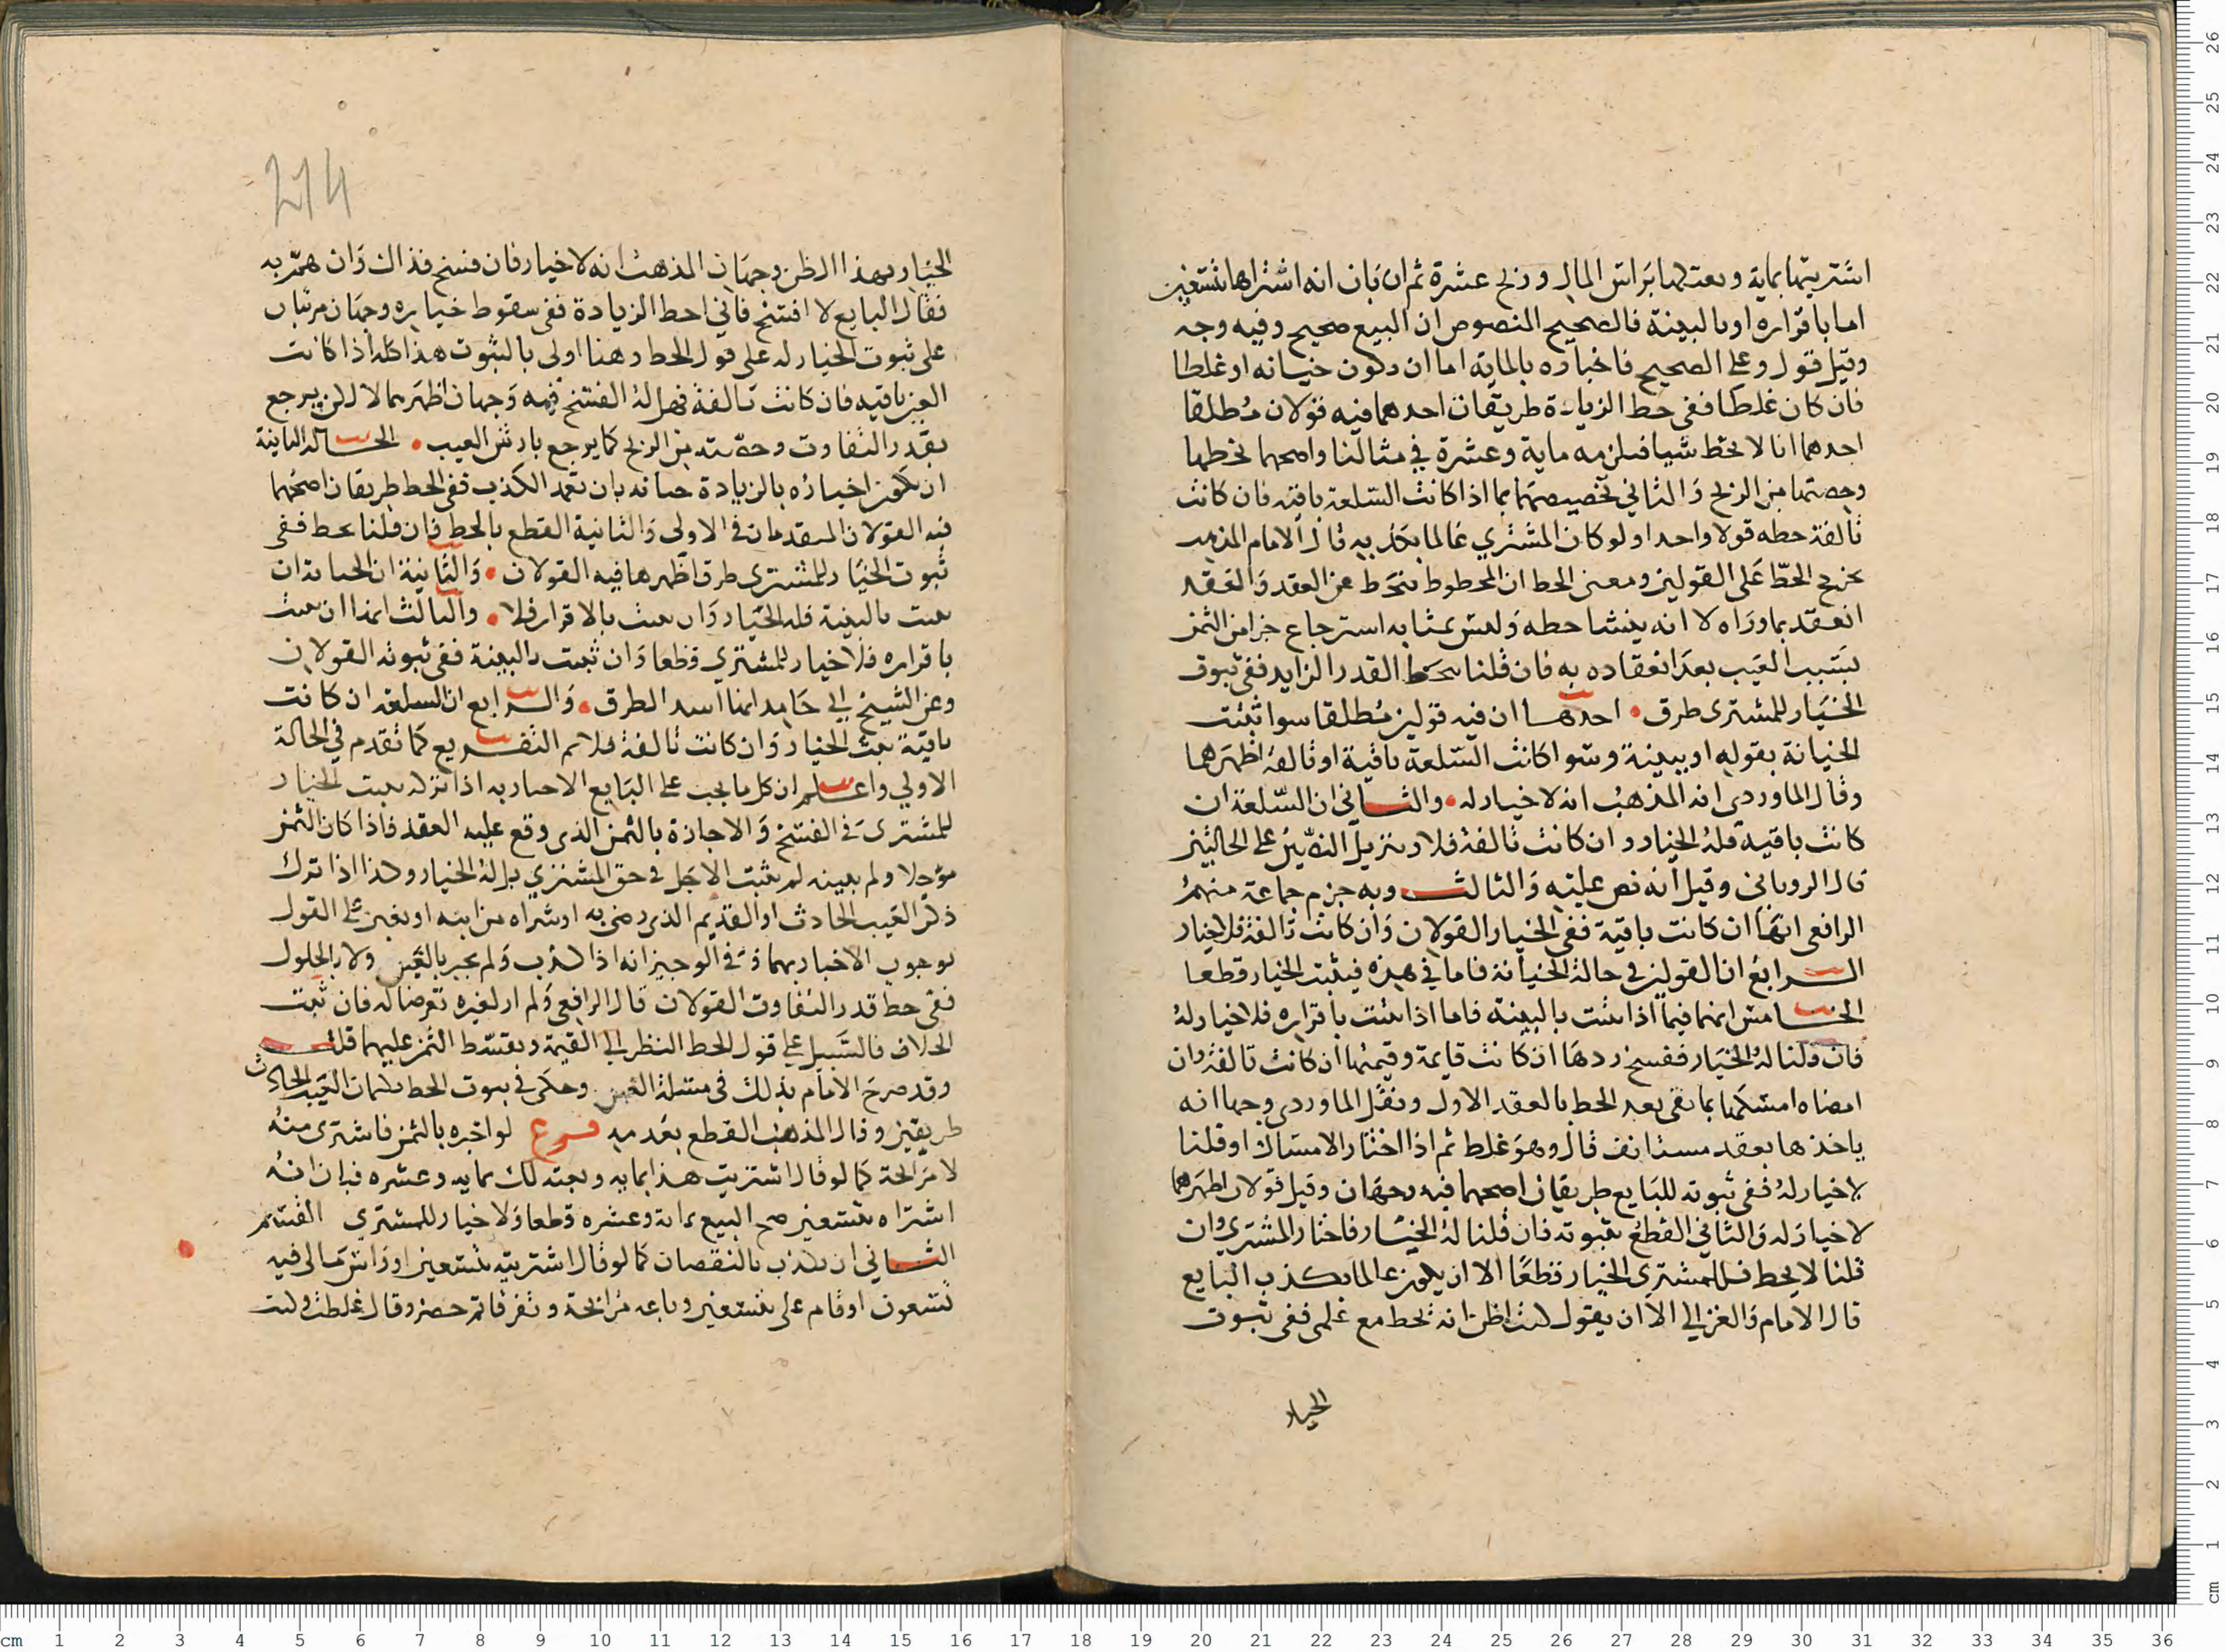 اشتريتها بماية وبعتكها براس المال وربح عشرة ثم ان بان انه اشتراها بتسعين
اما باقراره او بالبينة فالصحيح المنصوص ان البيع صحيح وفيه وجه
وقيل قول وعلى الصحيح فاخباره بالماية اما ان يكون خيانه او غلطا
فان كان غلطا ففي حط الزيادة طريقان احدهما فيه قولان مطلقا
احدهما انا لا نحط شيا فيلزمه ماية وعشرة في مثالنا واصحهما نحطها
وحصتها من الربح والثاني تخصيصهما بما اذا كانت السلعة باقية فان كانت
تالفة حطه قولا واحدا ولو كان المشتري عالما بكذبه قال الامام المذهب
يخرج الحط على القولين ومعنى الحط ان المحطوط ينحط عن العقد والعقد
انعقد بما وراه لا انه ينشا حطه وليس بمثابه استرجاع جزا من الثمن
بسبب العيب بعد انعقاده به فان قلنا يحط القدر الزايد ففي ثبوت
الخيار للمشتري طرق احدها ان فيه قولين مطلقا سوا ثبتت
الخيانة بقوله او ببينة وسوا كانت السلعة باقية او تالفة اظهرهما
وقال الماوردي انه المذهب انه لا خيار له والثاني ان السلعة ان
كانت باقية فله الخيار وان كانت تالفة فلا وتنزيل النصين على الحالين
قال الروياني وقيل انه نص عليه والثالث وبه جزم جماعة منهم
الرافعي انها ان كانت باقية ففي الخيار القولان وان كانت تالفة فلا خيار
الرابع ان القولين في حالة الخيانة فاما في هذه فيثبت الخيار قطعا
الخامس انهما فيما اذا ثبت بالبينة فاما اذا ثبت باقراره فلا خيار له
فان قلنا له الخيار ففسخ ردها ان كانت قايمة وقيمتها ان كانت تالفة وان
امضاه امسكها بما بقي بعد الحط بالعقد الاول ونقل الماوردي وجها انه
ياخذها بعقد مستانف قال وهو غلط ثم اذا اختار الامساك او قلنا
لا خيار له ففي ثبوته للبايع طريقان اصحهما فيه وجهان وقيل قولان اظهرهما
لا خيار له والثاني القطع بثبوته فان قلنا له الخيار فاختار المشتري وان
قلنا لا يحط فللمشتري الخيار قطعا الا ان يكون عالما بكذب البايع
قال الامام والغزالي الا ان يقول كنت اظن انه يحط مع علمي ففي ثبوت
الخيار
214
الخيار بهذا الظن وجهان المذهب انه لا خيار فان فسخ فذاك وان هم به
فقال البايع لا افسخ فاني احط الزيادة ففي سقوط خياره وجهان مرتبان
على ثبوت الخيار له على قول الحط وهنا اولى بالثبوت هذا كله اذا كانت
العين باقيه فان كانت تالفة فهل له الفسخ فيه وجهان اظهرهما لا لكن يرجع
بقدر التفاوت وحصته من الربح كما يرجع بارش العيب الحالة الثانية
ان يكون اخباره بالزيادة خيانه بان تعمد الكذب ففي الحط طريقان اصحهما
فيه القولان المتقدمان في الاولى والثانية القطع بالحط فان قلنا يحط ففي
ثبوت الخيار للمشتري طرق اظهرها فيه القولان والثانية ان الخيانة ان
ثبتت بالبينة فله الخيار وان ثبتت بالاقرار فلا والثالث انها ان ثبتت
باقراره فلا خيار للمشتري قطعا وان ثبتت بالبينة ففي ثبوته القولان
وعن الشيخ ابي حامد انها اسد الطرق والرابع ان السلعة ان كانت
باقية ثبت الخيار وان كانت تالفة فلا ثم التفريع كما تقدم في الحالة
الاولي واعلم ان كل ما يجب على البايع الاخبار به اذا تركه يثبت الخيار
للمشتري في الفسخ والاجازة بالثمن الذي وقع عليه العقد فاذا كان الثمن
موجلا ولم يبينه لم يثبت الاجل في حق المشتري بل له الخيار وكذا اذا ترك
ذكر العيب الحادث او القديم الذي رضي به او شراه من ابنه او بغبن على القول
بوجوب الاخبار بهما ذ في الوجيز انه اذا كذب ولم يخبر بالغبن ولا بالحلول
ففي حط قدر التفاوت القولان قال الرافعي ولم ار لغيره تعرضا له فان ثبت
الخلاف فالسبيل على قول الحط النظر الى القيمة وتقسيط الثمن عليهما قلت
وقد صرح الامام بذلك في مسئلة الغبن وحكى في ثبوت الحط بكتمان العيب الحادث
طريقين وقال المذهب القطع بعدمه فرع لو اخبره بالثمن فاشترى منه
لا مرابحة كما لو قال اشتريت هذا بمايه وبعته لك بمايه وعشره فبان انه
اشتراه بتسعين صح البيع بماية وعشره قطعا ولا خيار للمشتري القسم
الثاني ان يكذب بالنقصان كما لو قال اشتريته بتسعين او راس مالى فيه
تسعون او قام علي بتسعين وباعه مرابحة وتفرقا ثم حضر وقال غلطت وكنت